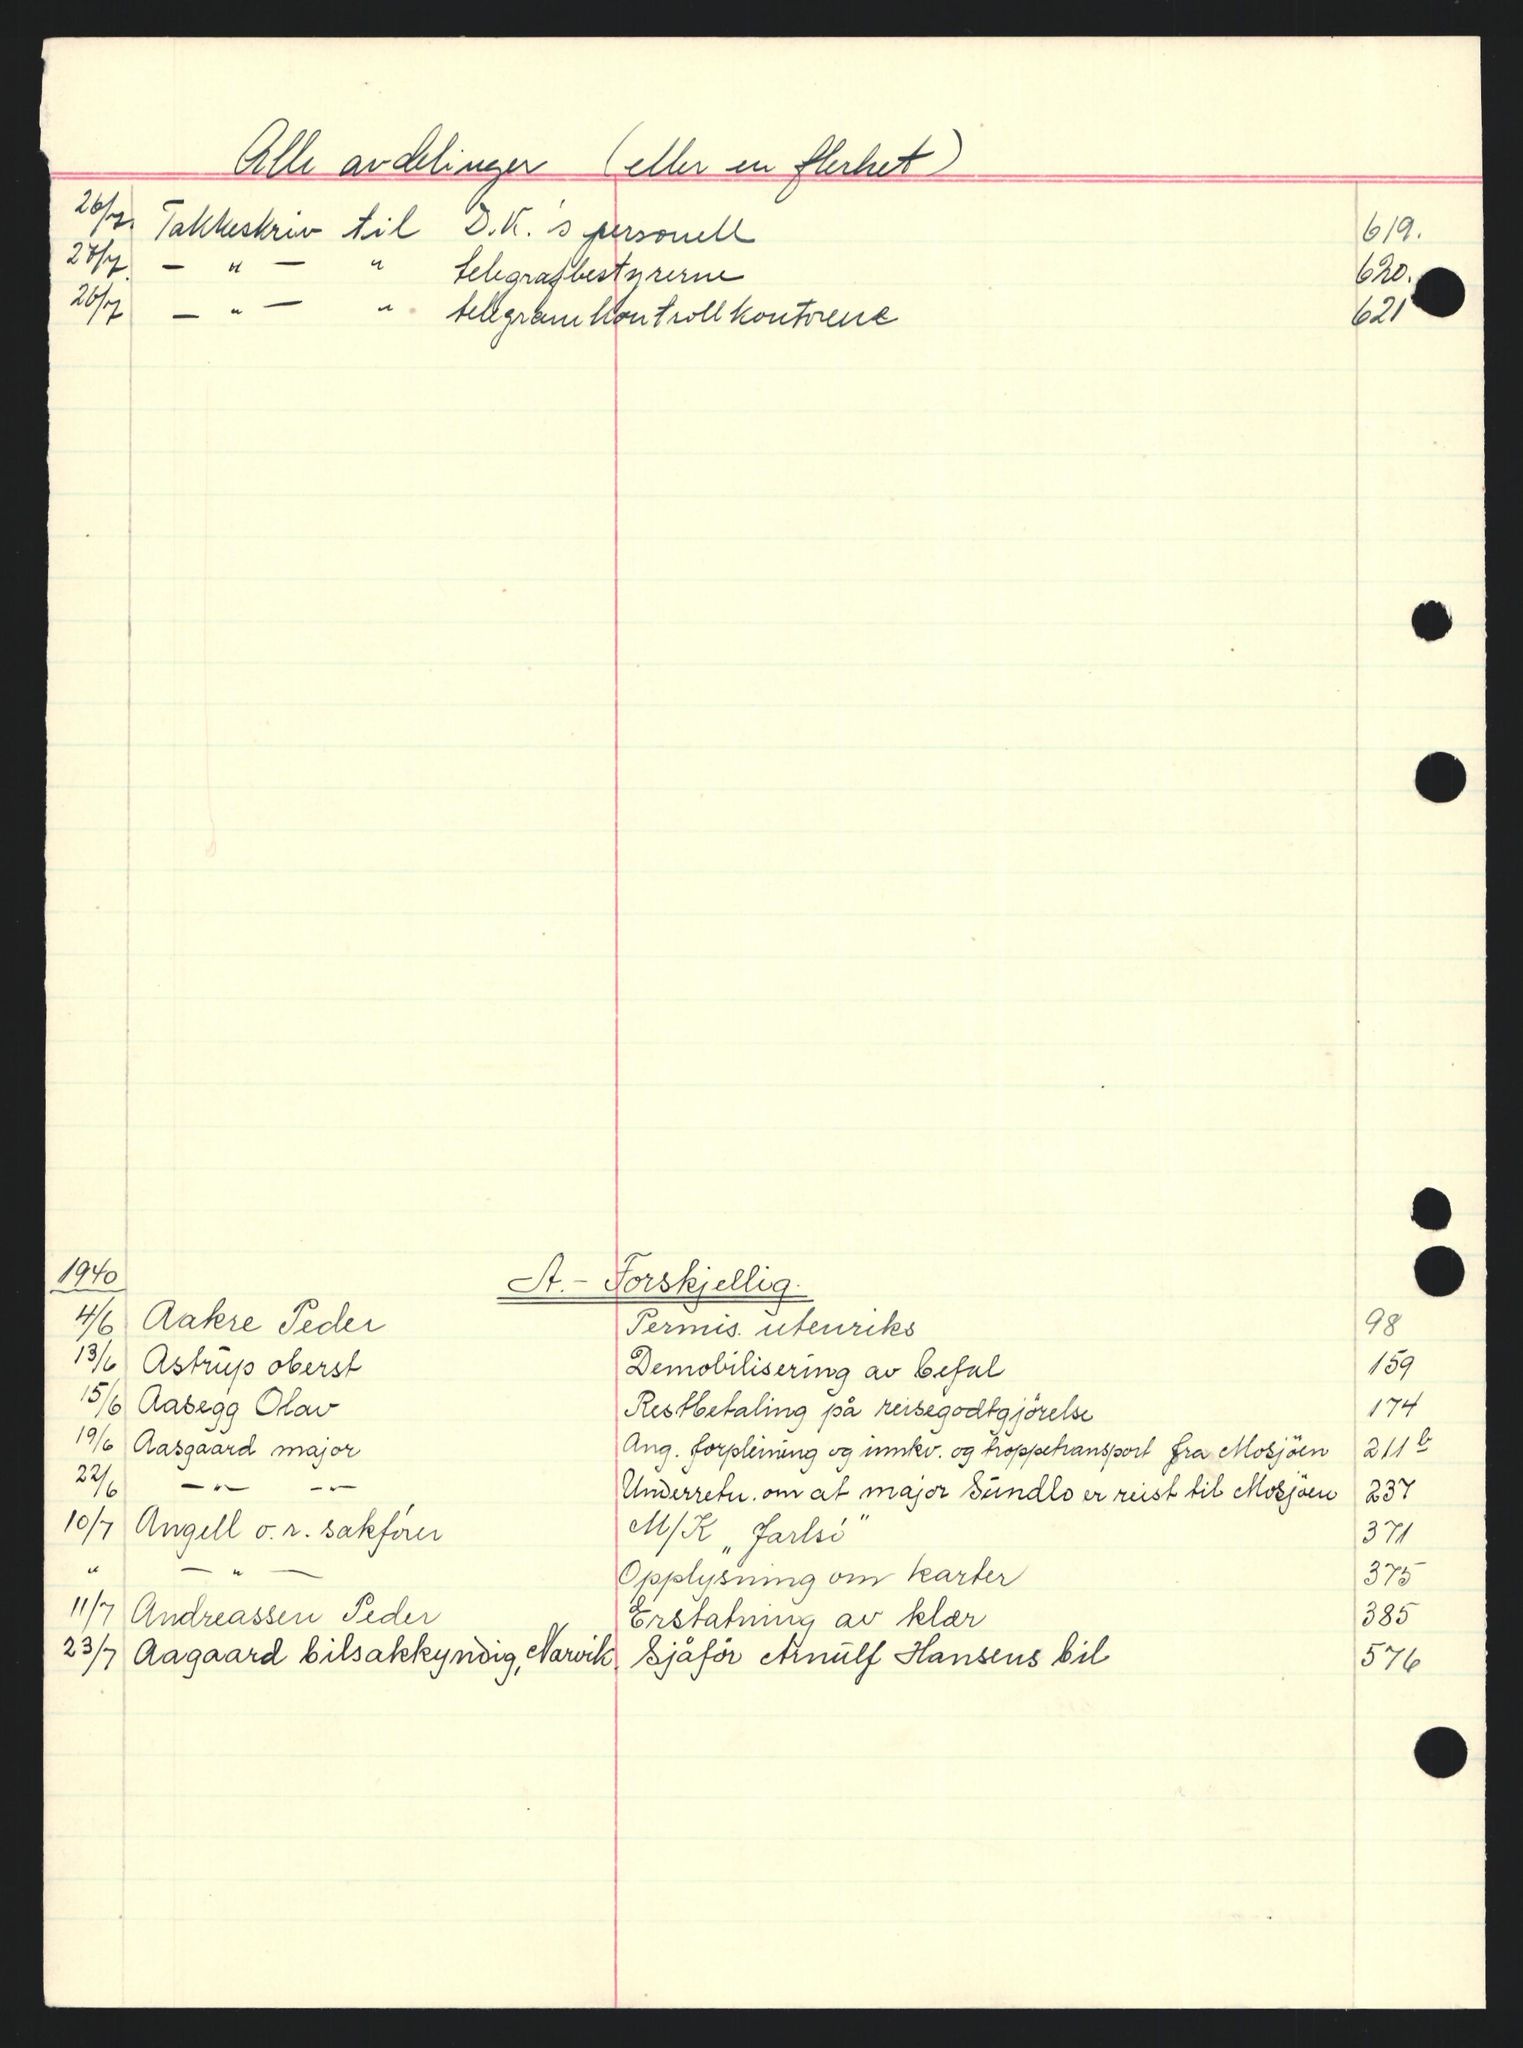 Alle avdelinger (eller en flerhet)
26/7. Takkeskriv til D.K.'s personell 619.
27/7. — " — " telegrafbestyrerne 620.
26/7 — " — " telegramkontrollkontorene 621
1940 A. - Forskjellig.
4/6 Aakre Peder Permis. utenriks 98
13/6 Astrup oberst Demobilisering av befal 159
15/6 Aasegg Olav Restbetaling på reisegodtgjörelse 174
19/6 Aasgaard major Ang. forpleining og innkv. og troppetransport fra Mosjöen 211b
22/6 —"— —"— Underretn. om at major Sundlo er reist til Mosjöen 237
10/7 Angell o.r. sakförer M/K „Jarlsö" 371
" — " — Opplysning om karter 375
11/7 Andreassen Peder Erstatning av klær 385
23/7 Aagaard bilsakkyndig, Narvik Sjåför Arnulf Hansens bil 576